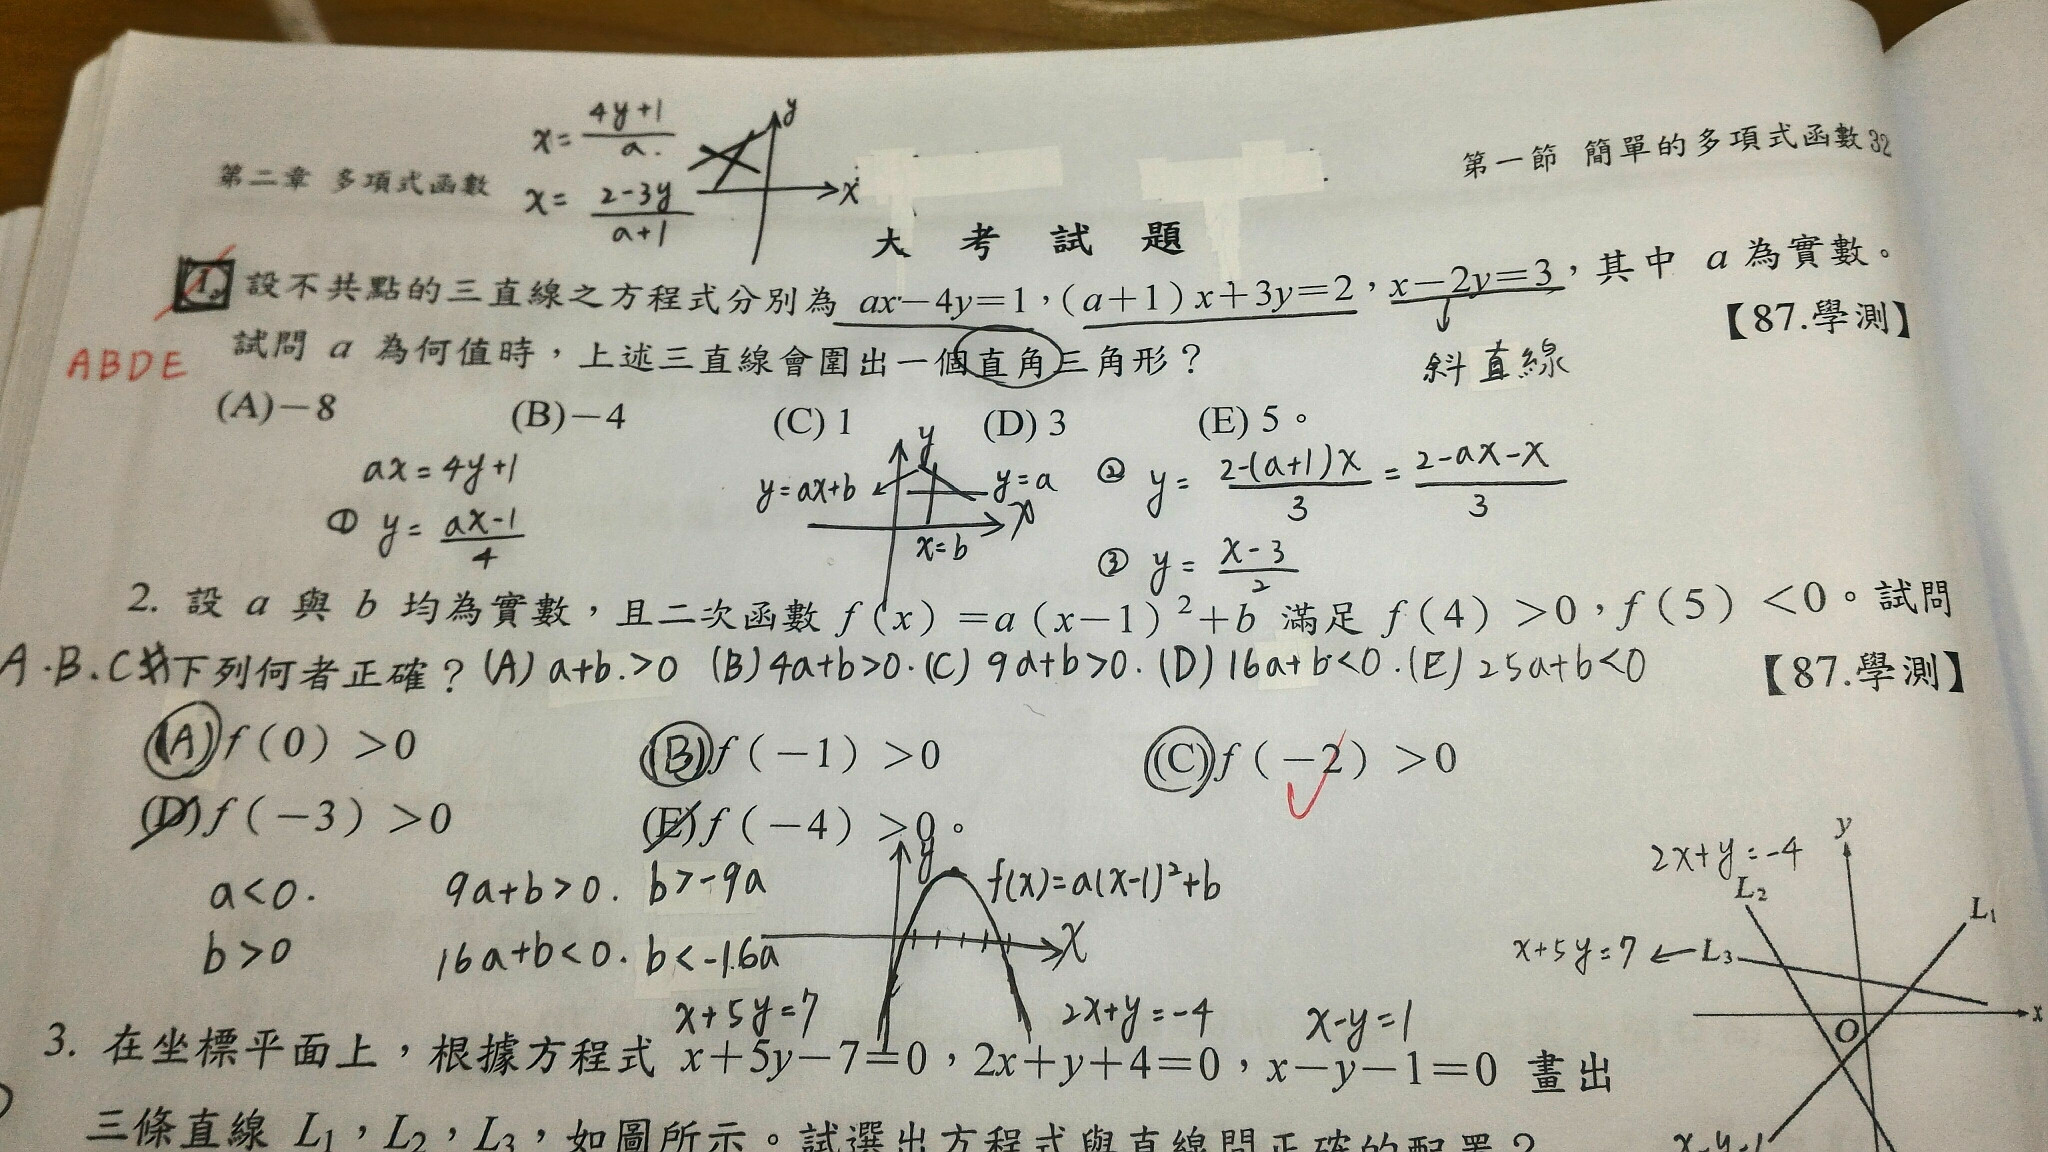 x= 4y+1/a.
x= 2-3y/a+1
y
x
第二章 多項式函數
第一節 簡單的多項式函數32
大考試題
1. 設不共點的三直線之方程式分別為 ax-4y=1,(a+1)x+3y=2,x-2y=3,其中 a 為實數。
試問 a 為何值時,上述三直線會圍出一個直角三角形?
【87.學測】
ABDE
斜直線
(A)-8 (B)-4 (C) 1 (D) 3 (E) 5。
ax=4y+1
① y= ax-1/4
y
y=ax+b
y=a
x
x=b
② y= 2-(a+1)x/3 = 2-ax-x/3
③ y= x-3/2
2. 設 a 與 b 均為實數,且二次函數 f(x)=a(x-1)²+b 滿足 f(4)>0,f(5)<0。試問
A.B.C 下列何者正確?(A) a+b.>0 (B) 4a+b>0.(C) 9a+b>0.(D) 16a+b<0.(E) 25a+b<0 【87.學測】
(A) f(0)>0 (B) f(-1)>0 (C) f(-2)>0
(D) f(-3)>0 (E) f(-4)>0。
a<0. 9a+b>0. b>-9a
b>0 16a+b<0. b<-16a
y
f(x)=a(x-1)²+b
x
2x+y=-4
y
L₂
L₁
x+5y=7
L₃
x
O
x+5y=7 2x+y=-4 x-y=1
3. 在坐標平面上,根據方程式 x+5y-7=0,2x+y+4=0,x-y-1=0 畫出
三條直線 L₁,L₂,L₃,如圖所示。試選出方程式與直線間正確的配置?
x-y=1